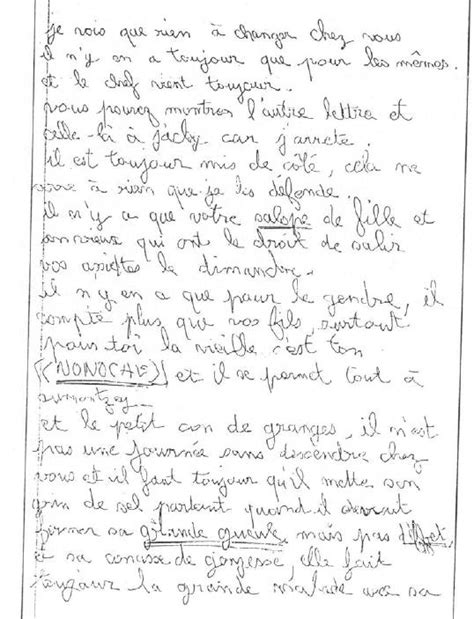 je vois que rien à changer chez vous
il n'y en a toujour que pour les mêmes.
et le chef vient toujour.
vous pouvez montrer l'autre lettre et
celle-là à jacky car j'arrete.
il est toujour mis de côté, cela ne
à rien que je les défende.
il n'y a que votre salope de fille et
son vieux qui ont le droit de salir
vos assiettes le dimanche.
il n'y en a que pour le gendre, il
compte plus que vos fils, surtout
pour toi la vieille c'est ton
et il se permet tout à
aumontzey
et le petit con de granges, il n'est
pas une journée sans descendre chez
vous et il faut toujour qu'il mette son
grin de sel partout quand il devrait
fermer sa grande gueule, mais pas
à sa de gonzesse, elle fait
toujour la grande malade avec sa